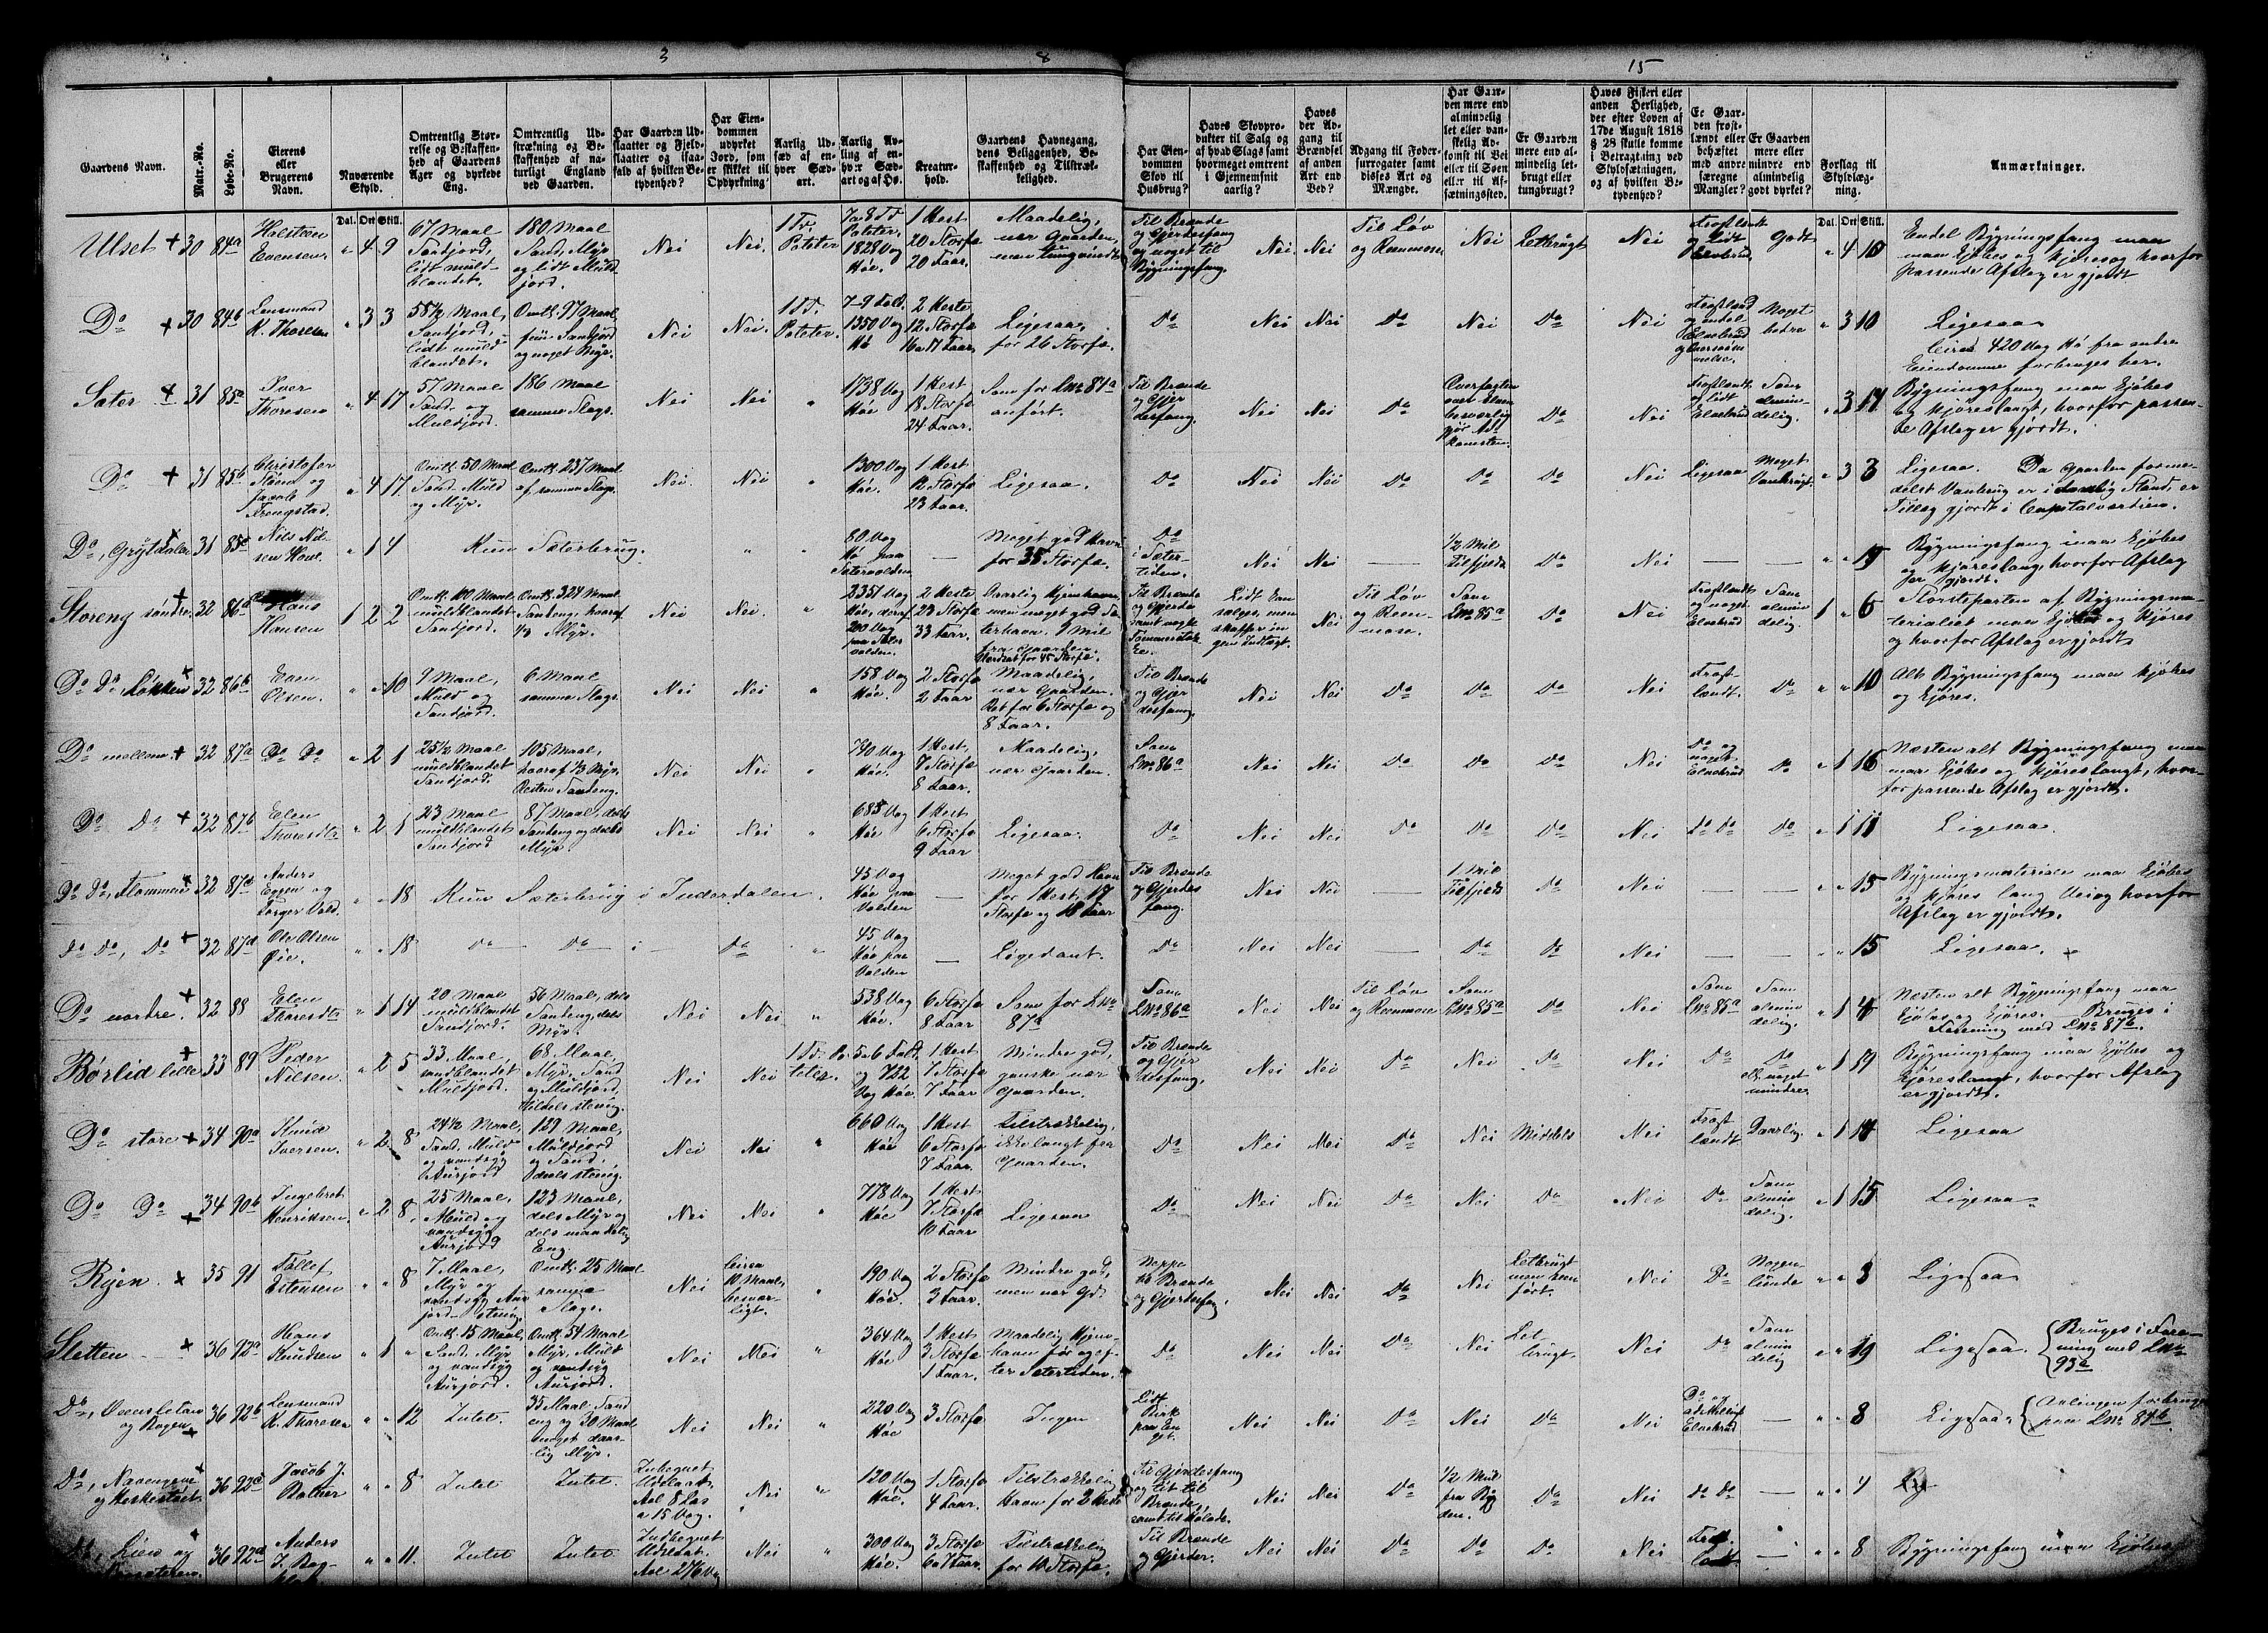 3 8 15
Gaardens Navn.
Matr.-No.
Løbe-No.
Eierens
eller
Brugerens
Navn.
Nuværende
Skyld.
Omtrentlig Stør-
relse og Beskaffen-
hed af Gaardens
Ager og dyrkede
Eng.
Omtrentlig Ud-
strækning og Be-
skaffenhed af na-
turligt England
ved Gaarden.
Har Gaarden Ud-
slaatter og Fjeld-
slaatter og isaa-
fald af hvilken Be-
tydenhed?
Har Eien-
dommen
udyrket
Jord, som
er skikket til
Opdyrkning?
Aarlig Ud-
sæd af en-
hver Sæd-
art.
Aarlig Av-
ling af en-
hver Sæd-
art og af Hø.
Kreatur-
hold.
Gaardens Havnegang,
dens Beliggenhed, Be-
skaffenhed og Tilstræk-
kelighed.
Har Eien-
dommen
Skov til
Husbrug?
Haves Skovpro-
dukter til Salg og
af hvad Slags samt
hvormeget omtrent
i Gjennemsnit
aarlig?
Haves
der Ad-
gang til
Brændsel
af anden
Art end
Ved?
Adgang til Foder-
surrogater samt
disses Art og
Mængde.
Har Gaar-
den mere end
almindelig
let eller van-
skelig Ad-
komst til Vei
eller til Søen
eller til Af-
sætningssted.
Er Gaarden
mere end al-
mindelig let-
brugt eller
tungbrugt?
Haves Fiskeri eller
anden Herlighed,
der efter Loven af
17de August 1818
§ 28 skulle komme
i Betragtning ved
Skyldsætningen,
og af hvilken Be-
tydenhed?
Er Gaar-
den frost-
lændt eller
beheftet
med andre
særegne
Mangler?
Er Gaarden
mere eller
mindre end
almindelig
godt dyrket?
Forslag til
Skyldlæg-
ning.
Anmærkninger.
Dal. Ort Skill.
Dal. Ort Skill.
Ulset + 30 84a Halsteen Evensen " 4 9 67 Maal Sandjord, lidt muld-blandet. 180 Maal Sand, Myr og lidt Muldjord. Nei Nei. 1 Td. Poteter 7 a 8 Td Poteter, 1828 Vog Høe. 1 Hest 20 Storfæ 20 Faar. Maadelig, nær Gaarden, men tungvindt Til Brænde og Gjerdesfang og noget til Bygningsfang. Nei. Nei Til Løv og Renmose Nei Letbrugt Nei Frostlændt og lidt Elvebrud Godt " 4 10 Endel Bygningsfang maa maa kjøbes og kjøres og hvorfor passende Afslag er gjordt
Do + 30 84b Lensmand K. Thoresen " 3 3 58½ Maal, Sandjord, lidt muld-blandet. Omtr. 97 Maal fiin Sandjord og noget Myr. Nei Nei. 1 Td. Poteter. 7-9 Fold. 1350 Vog Hø 2 Heste 12 Storfæ 16 a 17 Faar. Ligesaa, for 26 Storfæ. Do Nei Nei Do Nei Do Nei Frostlændt og endel Elvebrud Meget bedre " 3 10 Ligesaa Circa 420 Vog Hø fra andre Eiendomme forbruges her.
Sæter + 31 85a Iver Thoresen " 4 17 57 Maal Sand- og Muldjord. 186 Maal samme Slags. Nei Nei " 1738 Vog Høe 1 Hest 18 Storfæ 24 Faar. Som for Lno 84a anført. Til Brænde og Gjerdesfang. Nei Nei Do Overfarten over Elven besværliggjør Adkomsten. Do Nei Frostlændt og lidt Elvebrud Som almindelig. " 3 17 Bygningsfang maa kjøbes og kjøres langt, hvorfor passende Afslag er gjordt.
Do + 31 85b Christofer Støen og Jacob Trengstad " 4 17 Omtr. 50 Maal Sand- Muld og Myr. Omtr. 237 Maal af samme Slags. Nei. Nei " 1300 Vog Høe. 1 Hest 12 Storfæ 23 Faar. Ligesaa. Do Nei Nei Do Do Do Nei Ligesaa Meget Vanbrugt. " 3 3 Ligesaa. Da Gaarden formedelst Vanbrug er i daarlig Stand, er Tillæg gjordt i Capitalværdien.
Do, Grytdalen + 31 85c Nils Nilsen Hoel " 1 4 Kun Sæterbrug. " " 80 Vog Hø paa Sætervolden — Meget god Havn for 35 Storfæ. Do i Sætertiden. Nei Nei — ½ Mil Tilfjelds Do Nei — — " " 17 Bygningsfang maa kjøbes og kjøres lang, hvorfor Afslag er gjordt.
Storeng søndre + 32 86a Hans Hansen 1 2 2 Omtr. 100 Maal, muldblandet Sandjord. Omtr. 324 Maal Sandeng, hvoraf ⅓ Myr. Nei Nei. " 2351 Vog Høe, deraf 200 Vog paa Sætervolden. 2 Heste 23 Storfæ 33 Faar. Daarlig Hjemhavn, men meget god Sæterhavn. 1 Mil fra Gaarden. Havnet for 45 Storfæ. Til Brænde og Gjerde samt nogle Tømmerstokke. Lidt kan sælges, men skaffer ingen Indtægt. Nei Til Løv og Renmose. Som Lno 85a Do Nei Frostlændt og noget Elvebrud Som almindelig. 1 " 6 Størsteparten af Bygningsmaterialiet maa kjøbes og kjøres og hvorfor Afslag er gjordt
Do Do, Løkken + 32 86b Even Olsen " " 10 9 Maal, Muld og Sandjord. 6 Maal samme Slags. Nei Nei " 158 Vog Høe. 2 Storfæ 2 Faar Maadelig, nær Gaarden. Ret for 6 Storfæ og 8 Faar. Til Brænde og Gjerdesfang. Nei Nei Do Do Do Nei Frostlændt. Do " " 10 Alt Bygningsfang maa kjøbes og kjøres.
Do mellem + 32 87a Do Do " 2 1 25½ Maal muldblandet Sandjord. 105 Maal, hvoraf ⅓ Myr. Resten Sandeng. Nei Nei " 790 Vog Høe. 1 Hest, 7 Storfæ 8 Faar. Maadelig, nær Gaarden. Som Lno 86a Nei Nei Do Do Do Nei Do og noget Elvebrud Do " 1 16 Næsten alt Bygningsfang maa maa kjøbes og kjøres langt, hvorfor passende Afslag er gjordt.
Do Do + 32 87b Elen Thoresdtr " 2 1 23 Maal muldblandet Sandjord 87 Maal, dels Sandeng og dels Myr. Nei Nei " 685 Vog Høe 1 Hest 6 Storfæ 9 Faar Ligesaa. Do Nei Nei Do Do Do Nei Do Do Do " 1 11 Ligesaa.
Do Do, Flommen + 32 87c Anders Eggen og Torger Vold. " " 18 Kun Sæterbrug i Inderdalen. 45 Vog Høe paa Volden — Meget god Havn for 1 Hest, 17 Storfæ og 18 Faar Til Brænde og Gjerdesfang. Nei Nei — 1 Mil Tilfjelds Do Nei — — " " 15 Bygningsmaterialer maa kjøbes og kjøres lang Vei og hvorfor Afslag er gjordt.
Do Do, Do + 32 87d Ole Olsen Øie. " " 18 Do — Do — i — Do " 45 Vog Høe paa Volden — Ligedant. Do Nei Nei — Do Do Nei — — " " 15 Ligesaa.
Do nordre. + 32 88 Elen Thoresdtr " 1 14 20 Maal muldblandet Sandjord. 56 Maal, dels Sandeng, dels Myr. Nei Nei " 538 Vog Høe. 6 Storfæ 8 Faar Som for Lno 87a Som Lno 86a Nei Nei Til Løv og Renmose Som Lno 85a Do Nei Som Lno 85a Som almindelig. " 1 4 Næsten alt Bygningsfang maa kjøbes og kjøres. — Bruges i Forening med Lno 87b.
Børlid lille + 33 89 Peder Nilsen. " 2 5 33 Maal, sandblandet Muldjord. 68 Maal, Myr, Sand og Muldjord, tildels stenig. Nei Nei 1 Td. Poteter. 5 a 6 Fold. og 722 Vog Høe 1 Hest 7 Storfæ 7 Faar Mindre god, ganske nær Gaarden. Til Brænde og Gjerdesfang. Nei Nei Do Nei Do Nei Do Do ell. noget mindre. " 1 19 Bygningsfang maa kjøbes og kjøres langt, hvorfor Afslag er gjordt.
Do store + 34 90a Knud Iversen. " 2 8 24½ Maal, Sand, Muld og vandsyg Aurjord 129 Maal, Muldjord og Sand, deels stenig. Nei Nei " 660 Vog Høe 1 Hest 6 Storfæ 7 Faar. Tilstrækkelig, ikke langt fra Gaarden. Do Nei Nei Do Nei Middels Nei Frostlændt Daarlig " 1 14 Ligesaa
Do Do + 34 90b Ingebret Henriksen. " 2 8. 25 Maal, Muld og vandsyg Aurjord 123 Maal, dels Myr og dels maadelig Eng Nei Nei " 778 Vog Høe 1 Hest 7 Storfæ 10 Faar Ligesaa Do Nei Nei Do Nei Do Nei Do Som almindelig. " 1 15 Ligesaa
Ryen. + 35 91 Tollef Estensen " " 8 7 Maal, Myr og vandsyg Aurjord, stenig. Omtr. 25 Maal samme Slags. Nei Circa 10 Maal, besværligt. " 190 Vog Høe. 2 Storfæ 3 Faar. Mindre god, men nær Gd. Neppe til Brænde og Gjerdesfang. Nei Nei Do Nei Letbrugt Nei Do Nogenlunde " " 3 Ligesaa
Sletten + 36 92a Hans Knudsen " 1 " Omtr. 15 Maal, Sand, Myr og vandsyg Aurjord. Omtr. 54 Maal Myr, Muld og vandsyg Aurjord. Nei Nei " 364 Vog Høe 1 Hest 3 Storfæ 1 Faar. Maadelig Hjemhavn før og efter Sætertiden. Do Nei Nei Do Nei Letbrugt. Nei Do Som almindelig " " 19 Ligesaa. Bruges i Forening med Lno 93a
Do, og Bogen + 36 92b Lensmand K. Thoresen " " 12 Intet. 35 Maal Sandeng og 30 Maal meget daarlig Myr. Nei Nei " 220 Vog Høe 3 Storfæ Ingen Lidt Birk paa Enget. Nei Nei Do Nei Do Nei Do og Elvebrud — " " 8 Ligesaa Avlingen forbruges paa Lno 84b.
Do, + 36 92c Jacob J. " " 8 Intet Intet. Indhegnet Udslaat, Avl 8 Læs a 15 Vog. Nei " 120 Vog Høe 1 Storfæ 4 Faar. Tilstrækkelig Havn for 2 Til Gjerdesfang og lidt til Brænde, Nei Nei Do ½ Mil fra Bygden. Do Nei Do Do — " " 4
Lien og + 36 92d Anders J. " " 11. Intet Intet Indhegnet Udslaat. Avl 276 Vog Nei " 300 Vog Høe. 3 Storfæ 6 a 7 Faar. Tilstrækkelig for 10 Storfæ. Til Brænde og Gjerder. Nei Nei Do Do Do Nei — " " 8 Bygningsfang maa kjøbes